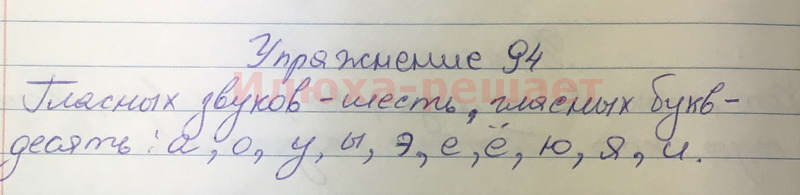 Упражнение 94
Илюха-решает
Гласных звуков - шесть, гласных букв -
десять: а, о, у, ы, э, е, ё, ю, я, и.